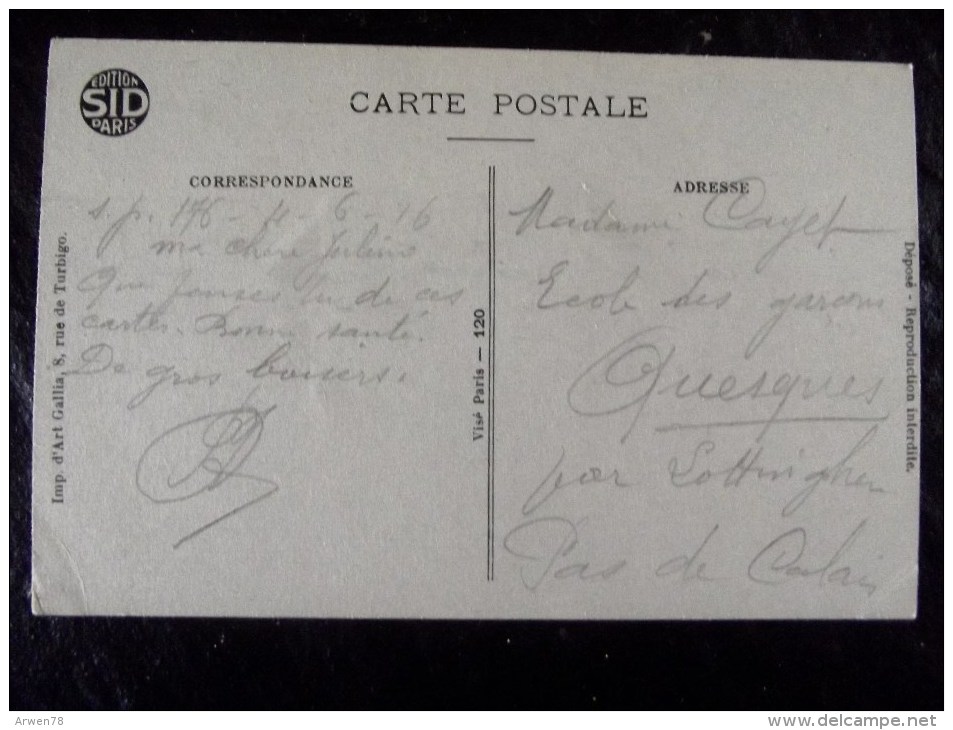 EDITION
SID
PARIS
CARTE POSTALE
CORRESPONDANCE
s.p. 176 - 4 - 6 - 16
ma chère
Que penses tu de ces
cartes. Bonne santé.
De gros baisers.
ADRESSE
Madame Cayet
Ecole des garçons
Quesques
par Lottinghen
Pas de Calais
Imp. d'Art Gallia, 8, rue de Turbigo.
Visé Paris — 120
Déposé - Reproduction interdite.
Arwen78
delcampe.net